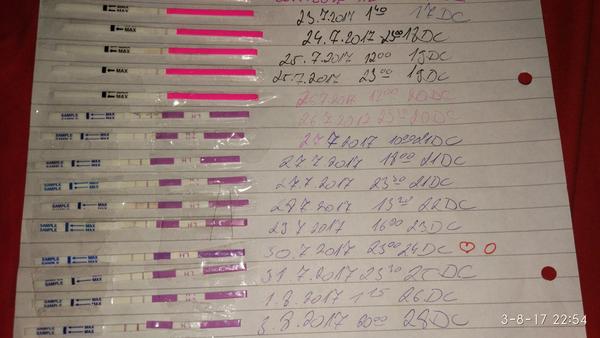 MAX 23.7.2017 1⁴⁰ 17DC
MAX 24.7.2017 23⁰⁰ 18DC
MAX 25.7.2017 12⁰⁰ 19DC
MAX 25.7.2017 23⁰⁰ 19DC
MAX 26.7.2017 20DC
SAMPLE MAX LH 26.7.2017 20DC
SAMPLE MAX 27 7 2017 21DC
SAMPLE MAX 27 7 2017 21DC
SAMPLE MAX 27.7.2017 21DC
SAMPLE MAX 7 2017 22DC
SAMPLE MAX LH 29 7.2017 16⁰⁰ 23DC
SAMPLE MAX LH 30.7.2017 23⁰⁰ 24DC
SAMPLE MAX LH 31 7.2017 25DC
SAMPLE MAX 1.8.2017 26DC
SAMPLE MAX LH 3.8.2017 20⁰⁰ 28DC
3-8-17 22:54